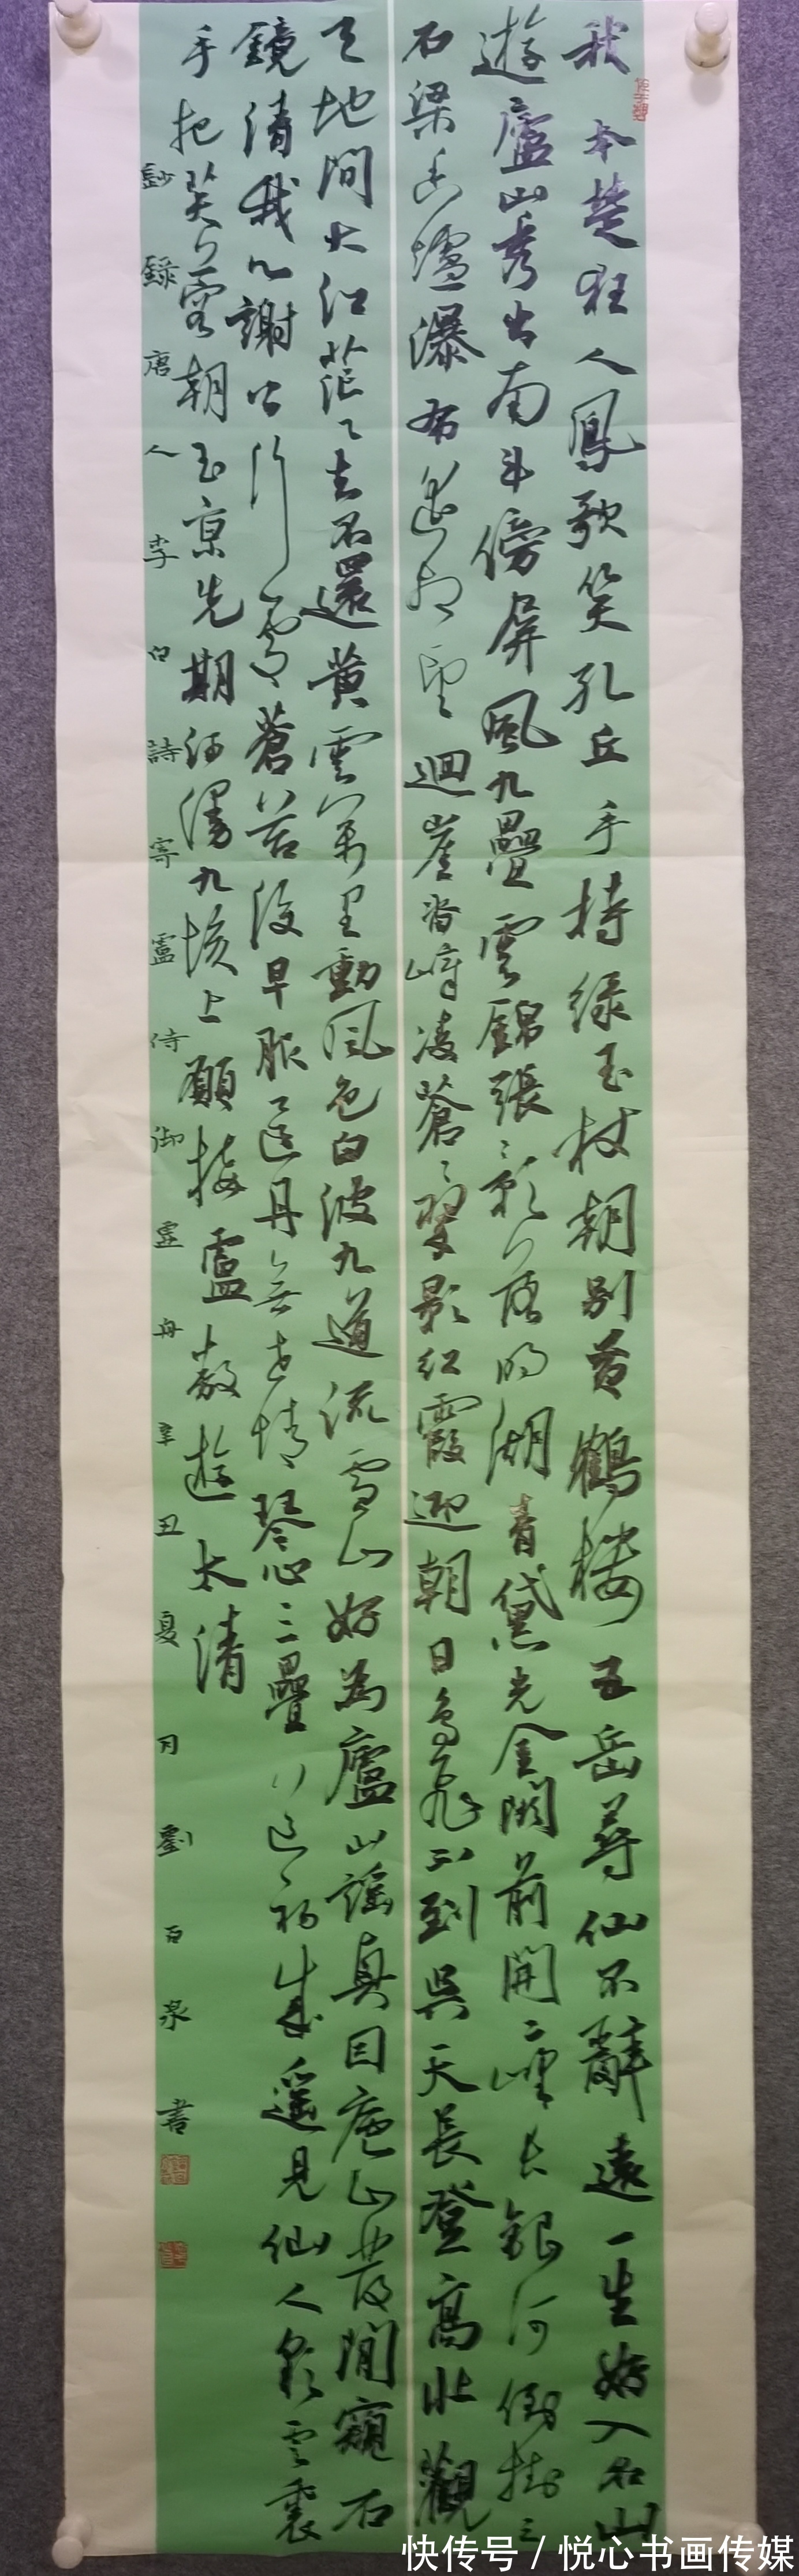 我本楚狂人鳳歌笑孔丘手持绿玉杖朝别黄鶴楼五岳尋仙不辭遠一生好入名山
遊廬山秀出南斗傍屏風九疊雲錦張影落明湖青黛光金闕前開二峰长銀河倒挂三
石梁香爐瀑布遥相望迴崖沓嶂凌蒼〻翠影红霞迎朝日鳥飛不到吳天長登高壯觀
天地間大江茫〻去不還黄雲萬里動風色白波九道流雪山好為廬山謡興因廬山發閒窺石
鏡清我心謝公行處蒼苔没早服還丹無世情琴心三疊道初成遥見仙人彩雲裏
手把芙蓉朝玉京先期汗漫九垓上願接盧敖遊太清
鈔錄唐人李白詩寄盧侍御虚舟辛丑夏月劉百泉書
快传号 / 悦心书画传媒